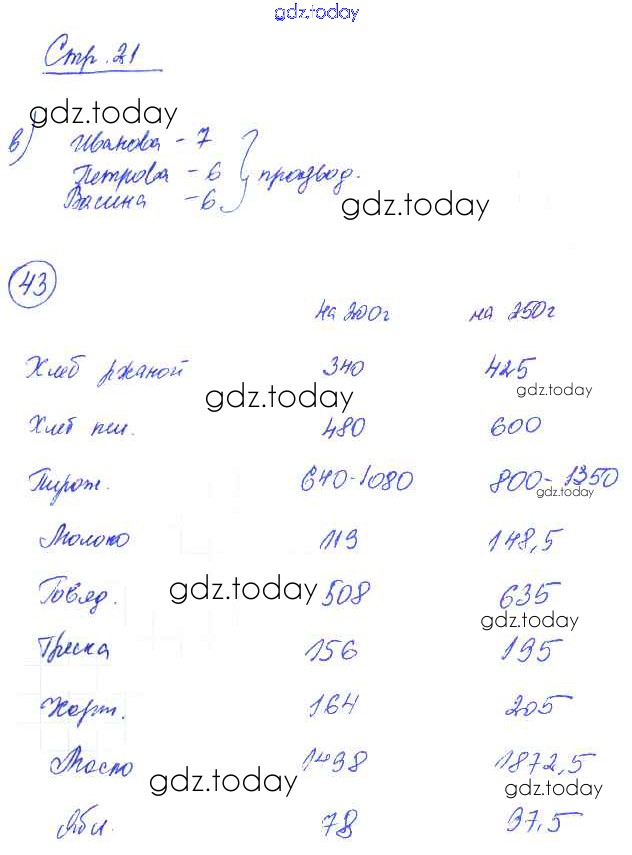 gdz.today
Стр. 21
gdz.today
в) Иванова - 7
Петрова - 6 } производ.
Васина - 6
gdz.today
43
на 200г на 250г
Хлеб ржаной 340 425
gdz.today gdz.today
Хлеб пш. 480 600
Пирож. 640-1080 800-1350
gdz.today
Молоко 119 148,5
Говяд. 508 635
gdz.today gdz.today
Треска 156 195
Карт. 164 205
Масло 1498 1872,5
gdz.today gdz.today
Ябл. 78 97,5